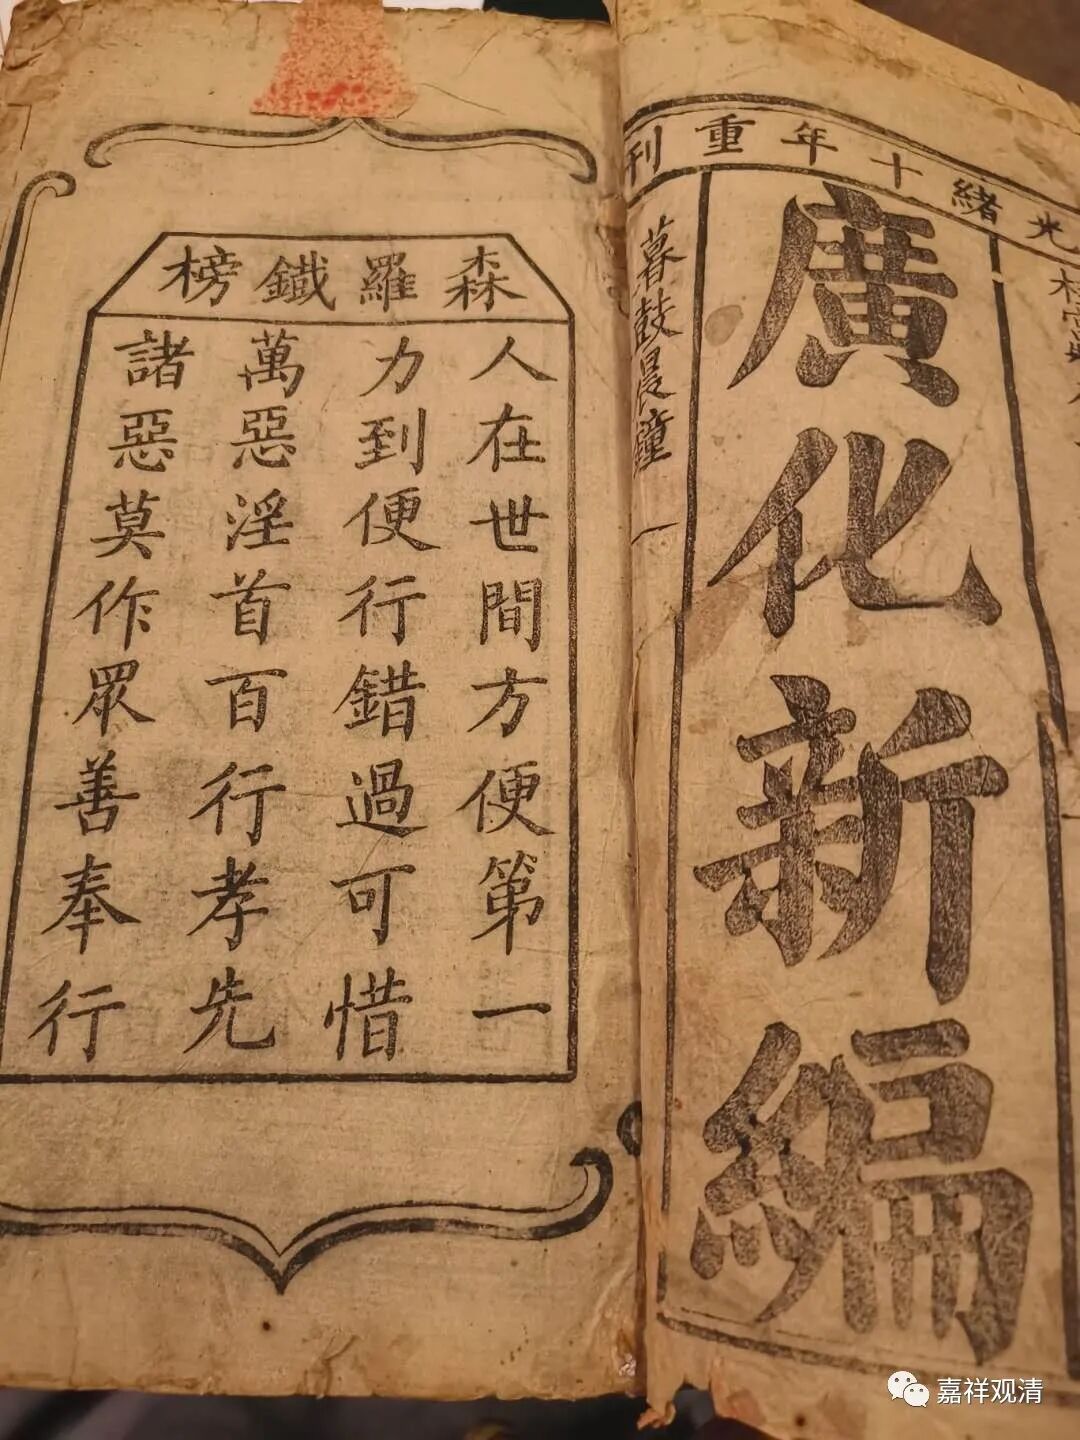 光緒十年重刊
廣化新編
暮鼓晨鐘 一
森羅鐵榜
人在世間方便第一
力到便行錯過可惜
萬惡淫首百行孝先
諸惡莫作眾善奉行
嘉祥观清